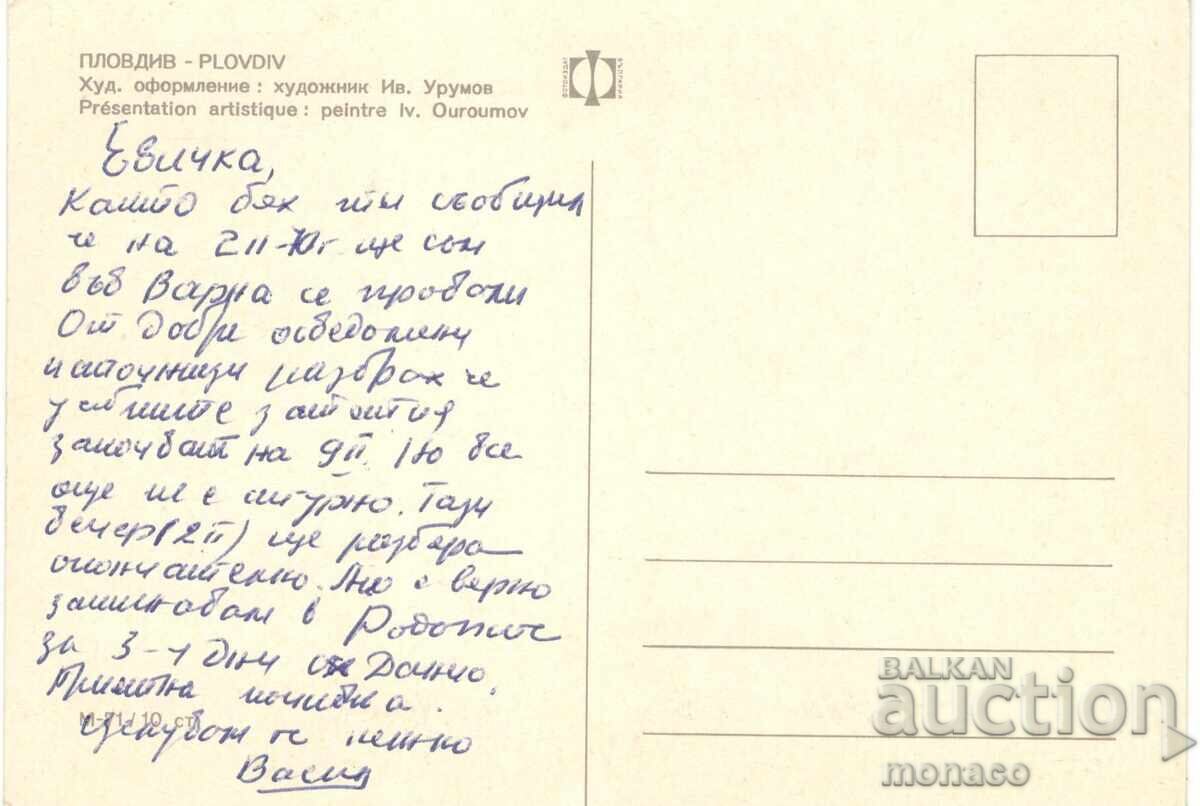 ПЛОВДИВ - PLOVDIV
Худ. оформление : художник Ив. Урумов
Présentation artistique : peintre Iv. Ouroumov
ФОТОИЗДАТ БЪЛГАРИЯ
Евичка,
Както бях ти съобщил
че на 2 II - ще съм
във Варна се провали
От добре осведомени
източници разбрах че
учебните занятия
започват на 9 II. Но все
още не е сигурно. Тази
вечер (2 II) ще разбера
окончателно. Ако е вярно
заминавам в Родопите
за 3-4 дни с Данчо.
Приятна почивка.
М-71 / 10 ст.
Целувам те нежно
Васил
BALKAN
auction
monaco